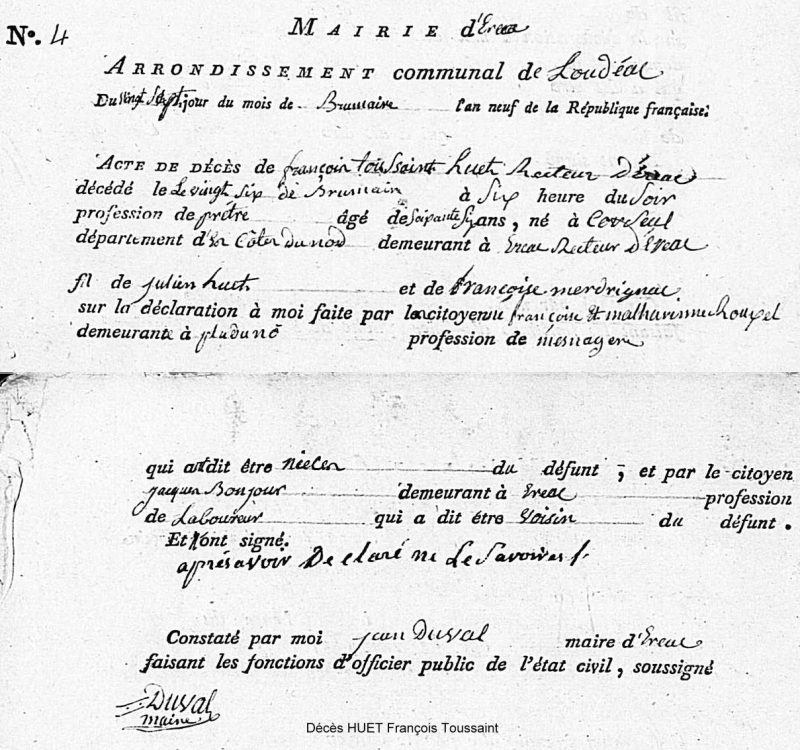 N°. 4
MAIRIE d'Ereac
ARRONDISSEMENT communal de Loudéac
Du vingt Sept jour du mois de Brumaire l'an neuf de la République française:
ACTE DE DÉCÈS de françoin toussaint huet Recteur d'éreac
décédé le Le vingt Six de Brumain à Six heure du Soir
profession de prêtre âgé de Soixante Six ans, né à CorSeul
département d'es Côtes du nord demeurant à Ereac Recteur d'Ereac
fil de julien huet et de françoise merdrignac
sur la déclaration à moi faite par la citoyenne françoise et matharinne Rouxel
demeurante à pluduno profession de mesnagere
qui a dit être niecer du défunt ; et par le citoyen
jacques Bonjour demeurant à Ereac profession
de Laboureur qui a dit être Voisin du défunt.
Et ont signé.
aprés avoir Declaré ne Le Savoir
Constaté par moi jean Duval maire d'Ereac
faisant les fonctions d'officier public de l'état civil, soussigné
Duval
maire
Décès HUET François Toussaint